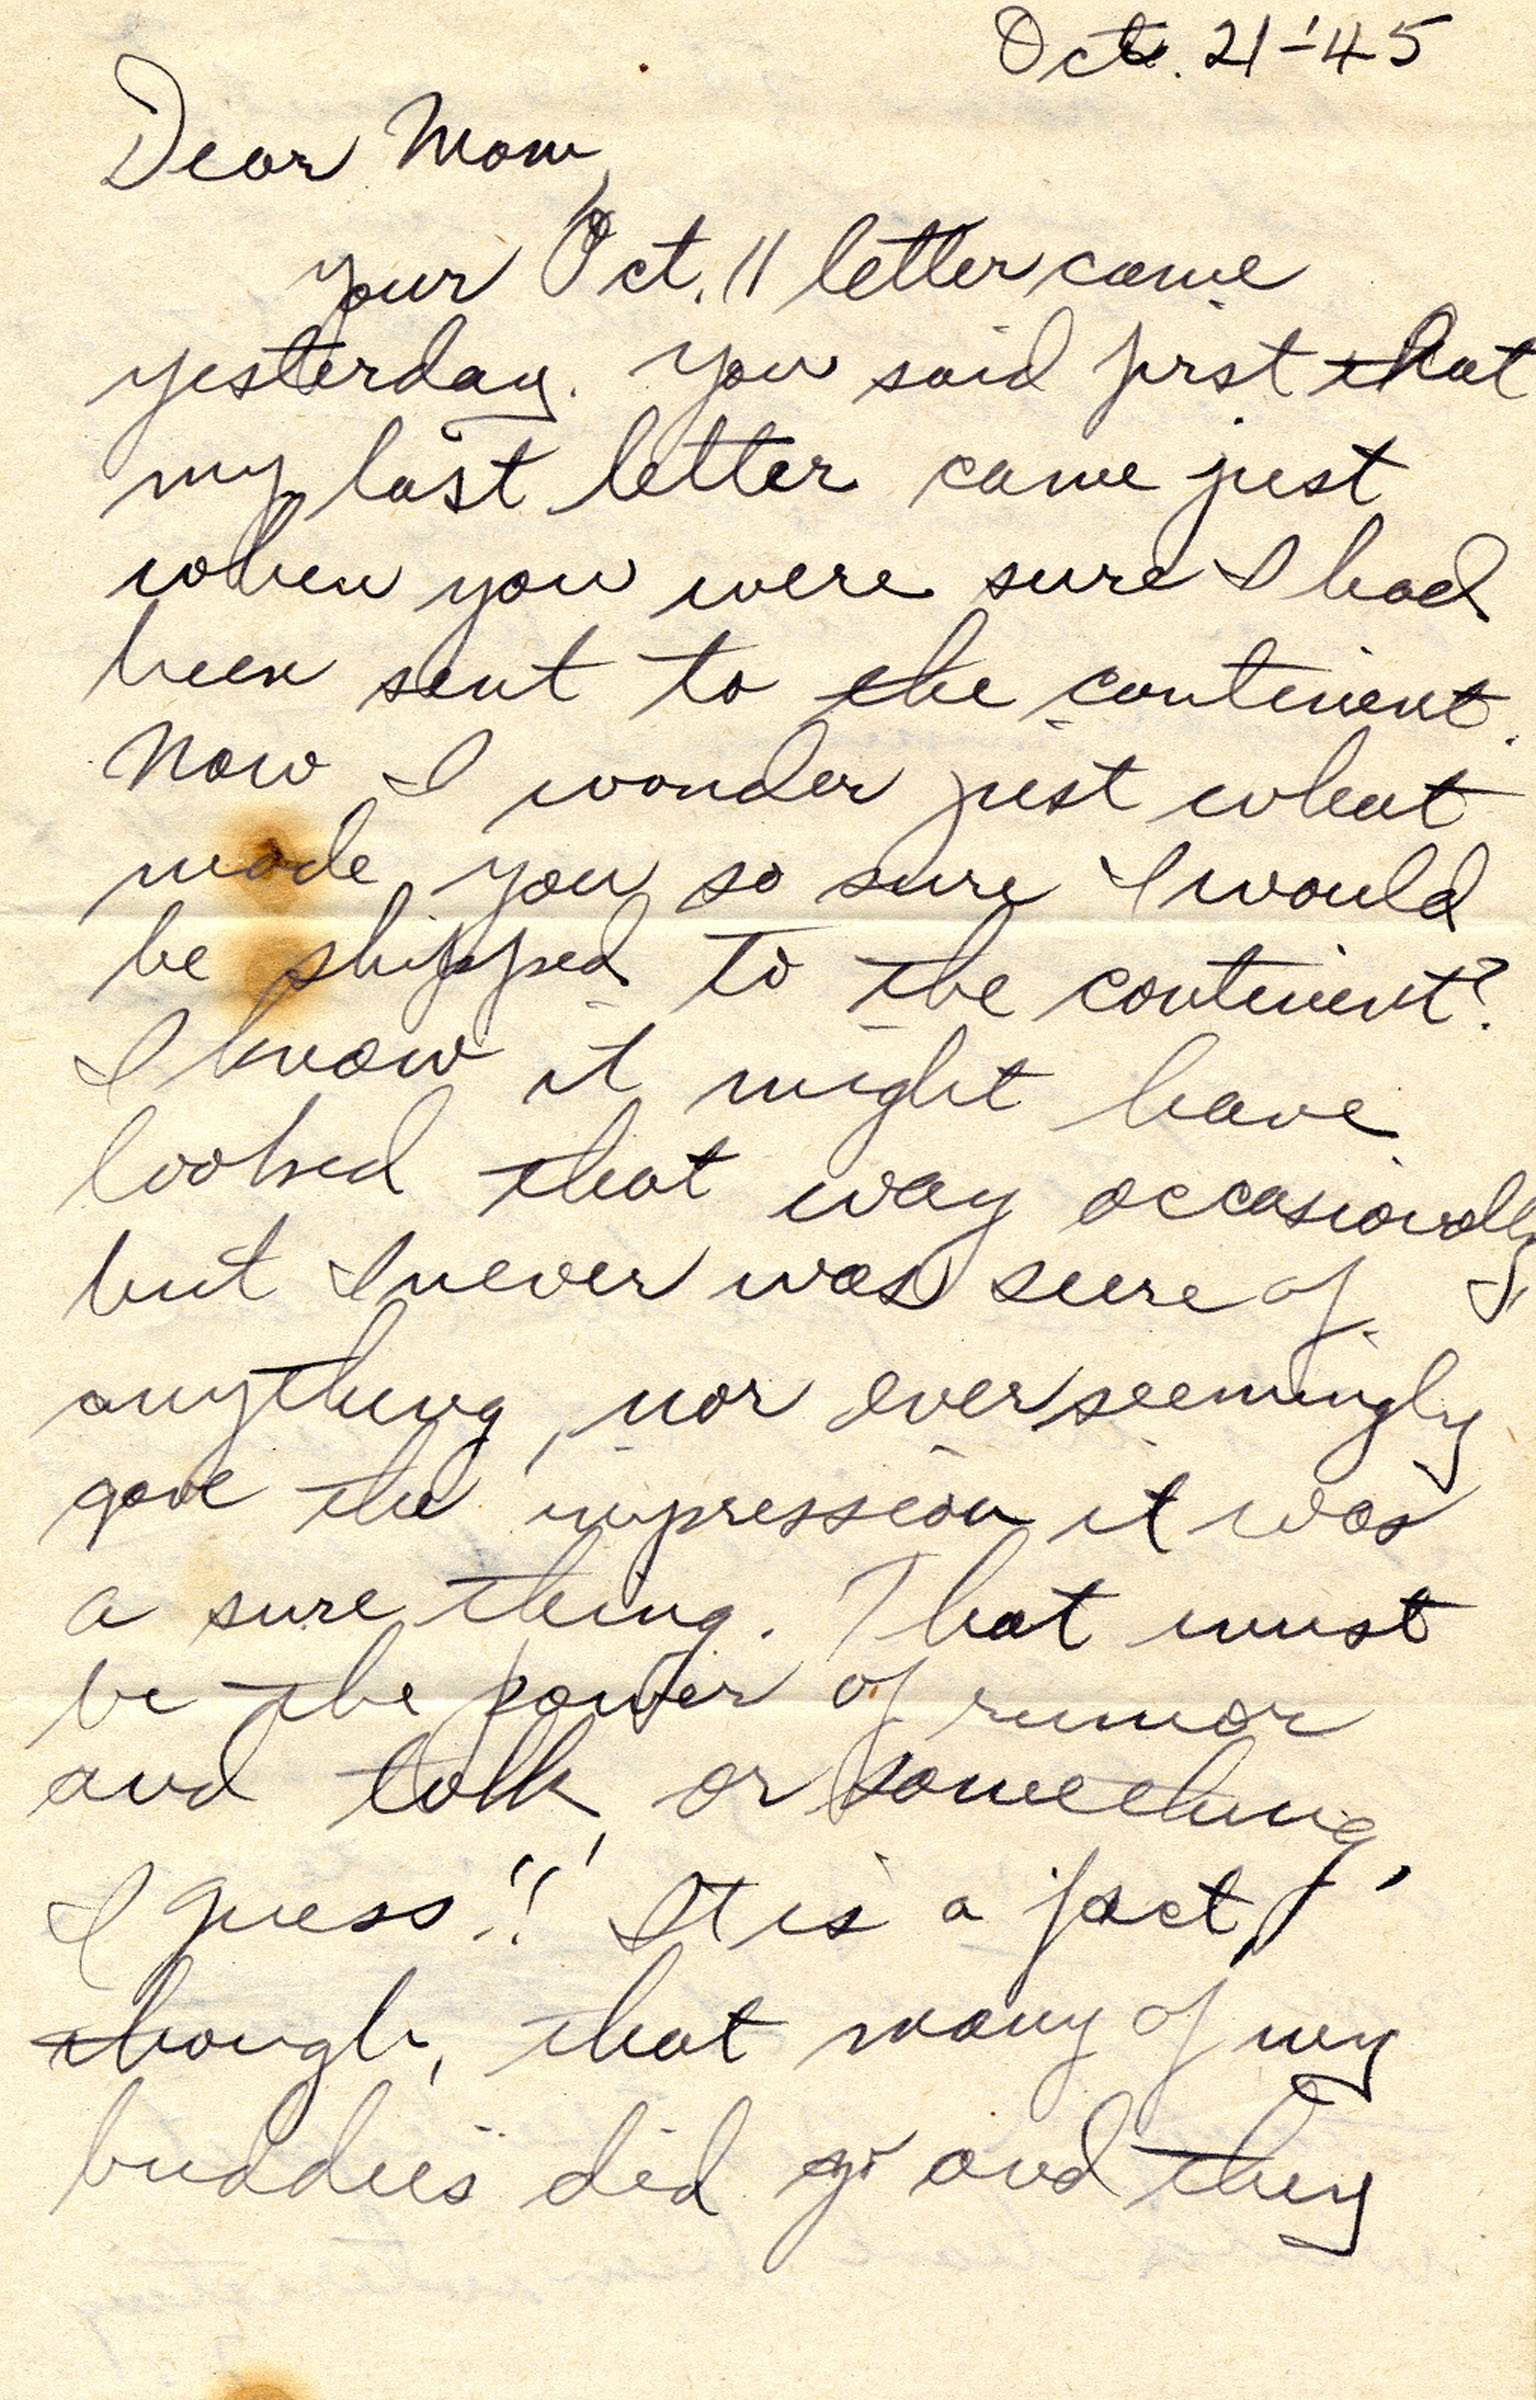 Oct. 21-'45
Dear Mom,
Your Oct. 11 letter came
yesterday. You said first that
my last letter came just
when you were sure I had
been sent to the continent.
Now I wonder just what
made you so sure I would
be shipped to the continent?
I know it might have
looked that way occasionally,
but I never was sure of
anything, nor ever seemingly
gave the impression it was
a sure thing. That must
be the power of rumor
and talk, or something,
I guess!! It is a fact,
though, that many of my
buddies did go and they